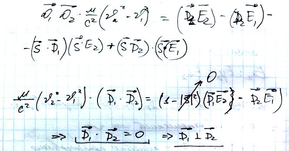 D⃗₁ D⃗₂ · μ/c² (v₂² - v₁²) = (D⃗₁E⃗₂) - (D⃗₂E⃗₁) -
-(S⃗·D⃗₁)(S⃗·E⃗₂) + (S⃗D⃗₂)·(S⃗E⃗₁)
0
μ/c² (v₂² - v₁²) · (D⃗₁ · D⃗₂) = (D⃗₁E⃗₂ - D⃗₂E⃗₁)
⇒ D⃗₁ · D⃗₂ = 0 ⇒ D⃗₁ ⊥ D⃗₂